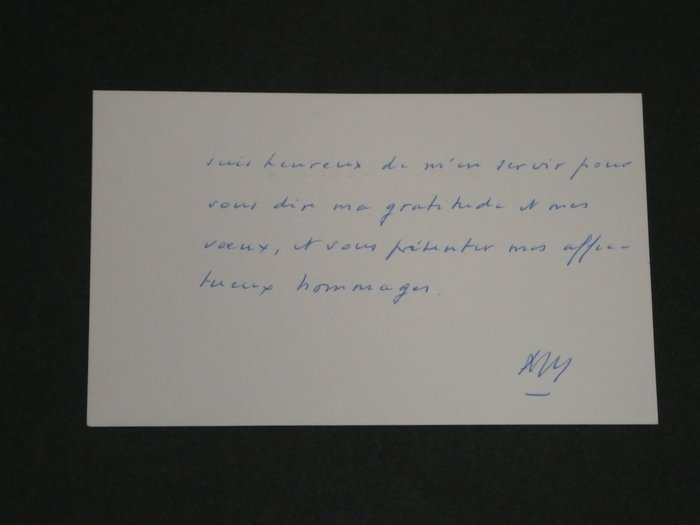 suis heureux de m'en servir pour
vous dire ma gratitude et mes
vœux, et vous présenter mes affec-
tueux hommages.